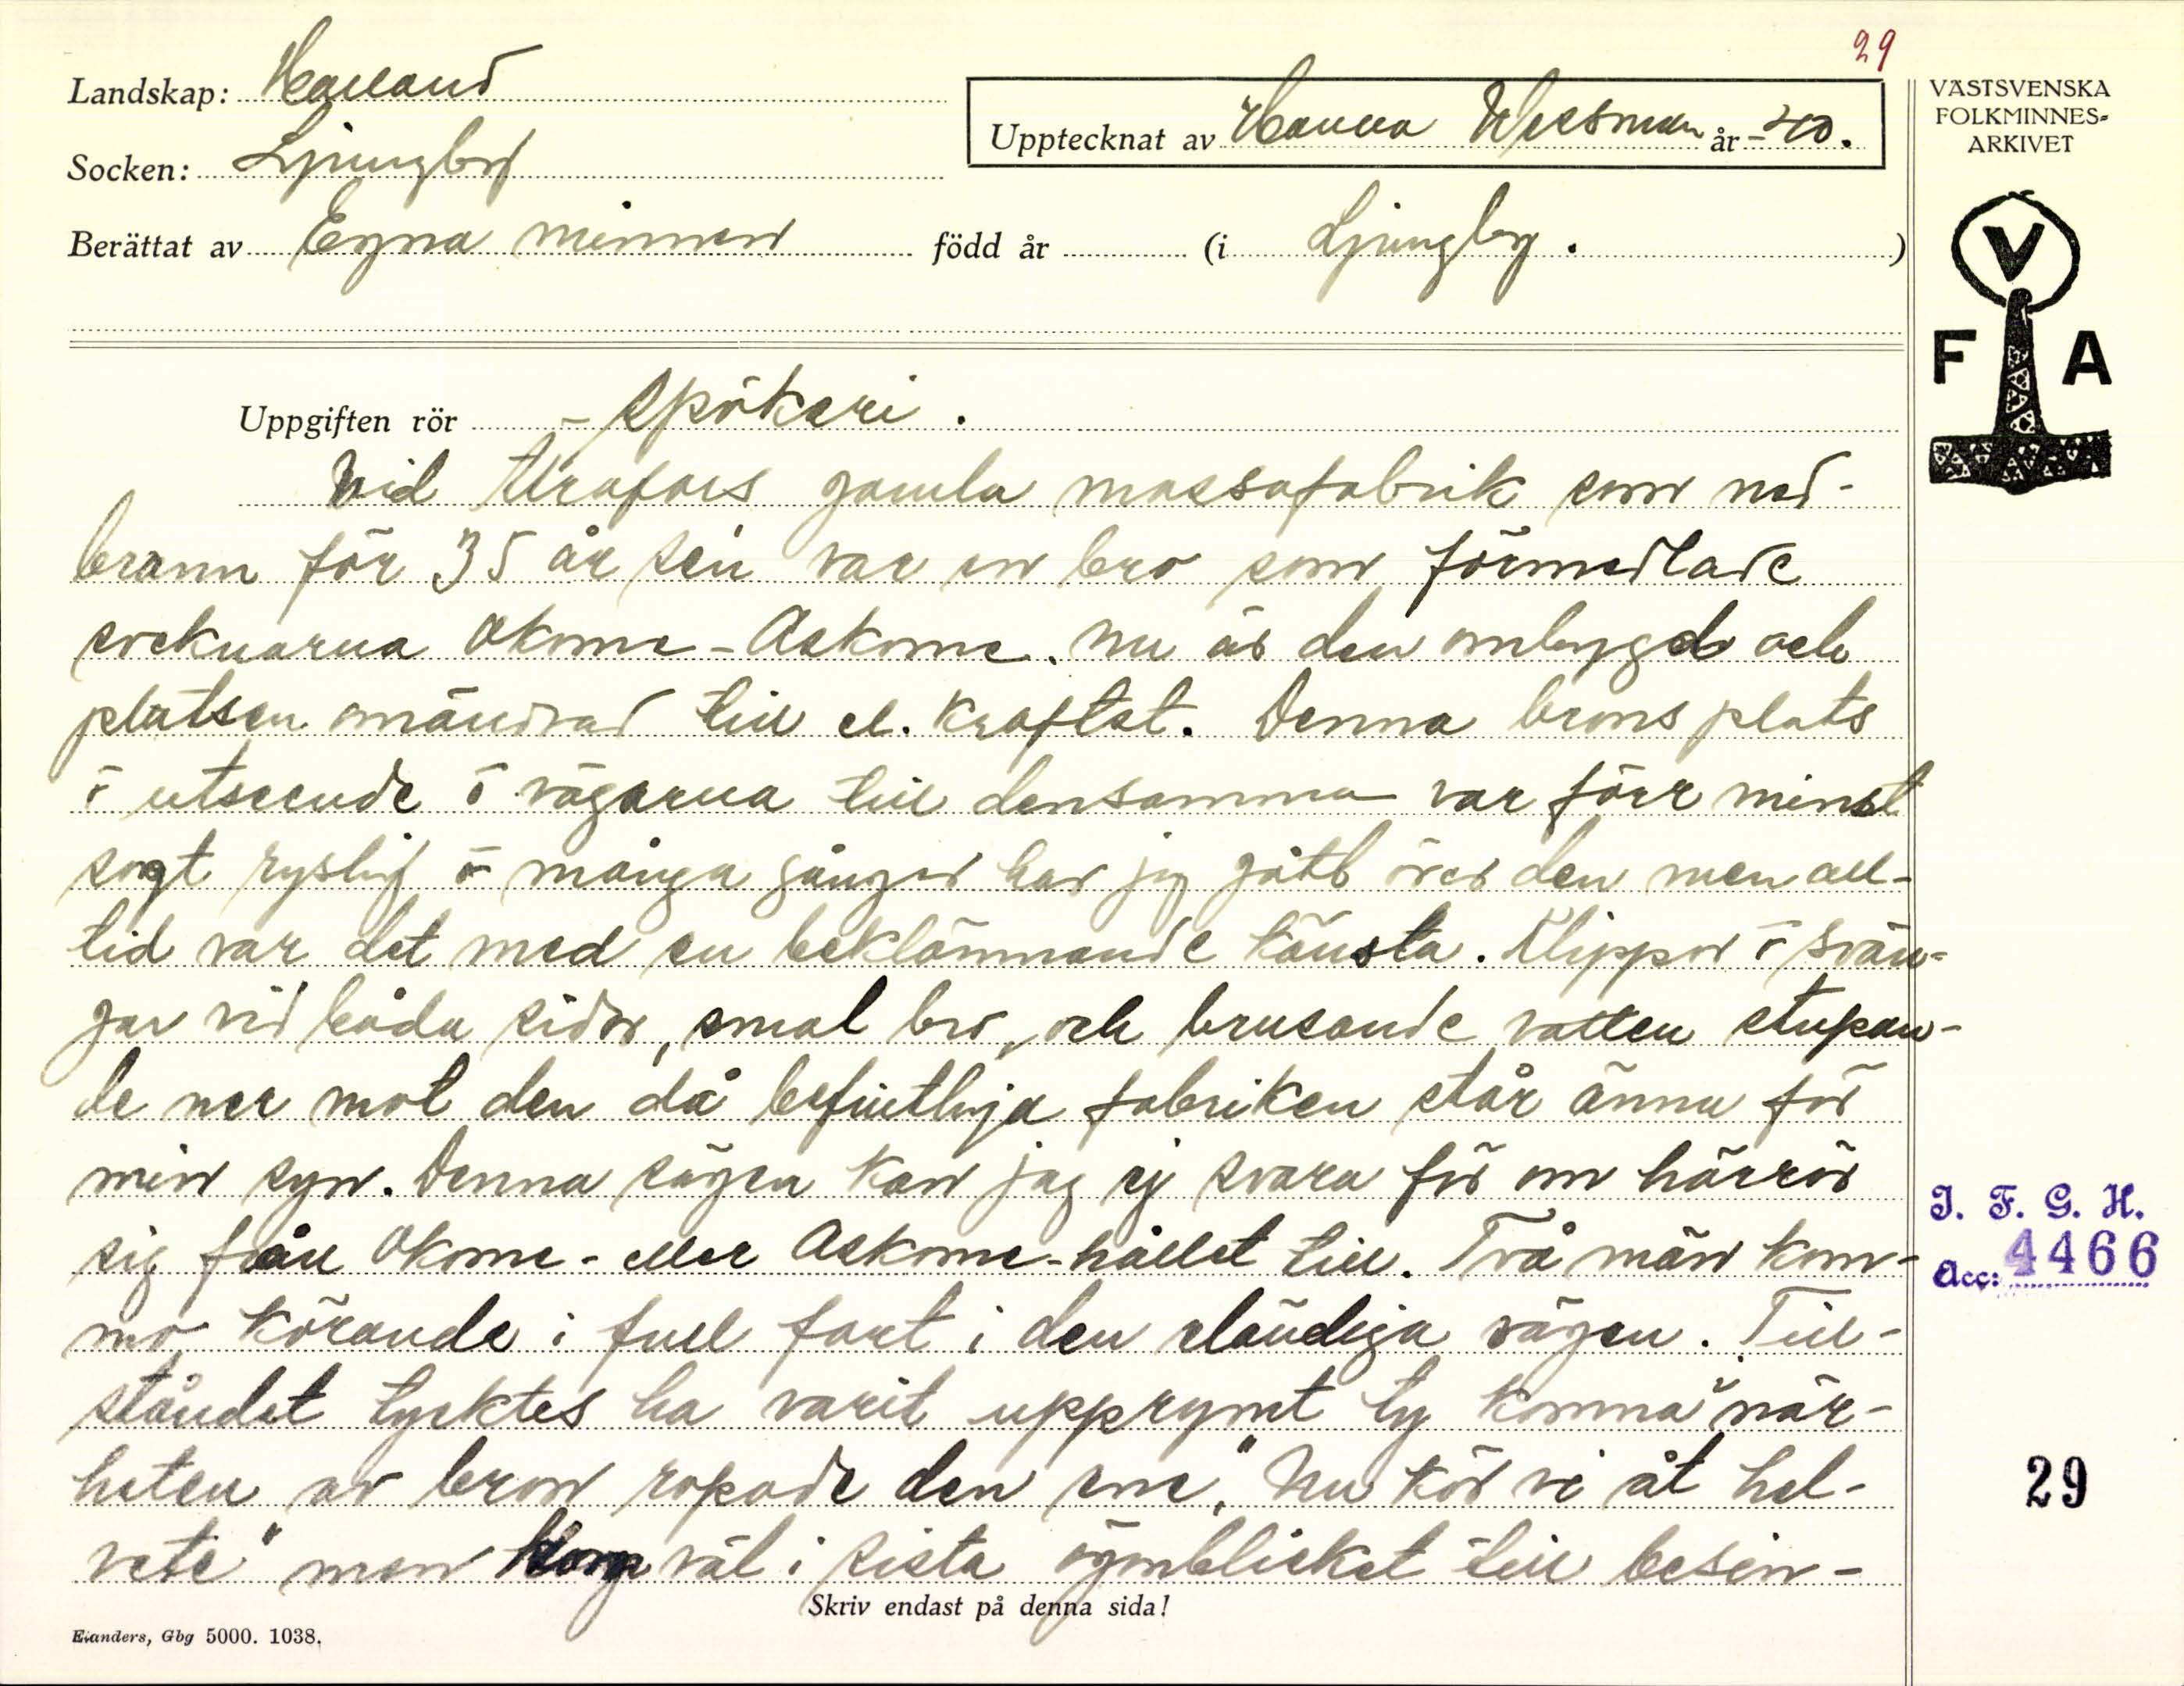 29
Landskap: Halland
Upptecknat av Hanna Wessman år -40.
Socken: Ljungby
Berättat av Egna minnen född år (i Ljungby.)
VÄSTSVENSKA
FOLKMINNES-
ARKIVET
V
F A
Uppgiften rör - Spökeri.
Vid gamla massafabrik som ned-
brann för 35 år sen var en bro som förmedlade
socknarna Okome - Askome. Nu är den ombygd och
platsen omändrad till el. kraftst. Denna brons plats
ö utseende ö vägarna till densamma var förr minst
sagt ryslig ö många gånger har jag gått över den men all-
tid var det med en beklämmande känsla. Klippor ö svän-
gar vid båda sidor, smal bro, och brusande vatten stupan-
de ner mot den då befintliga fabriken står ännu för
min syn. Denna sägen kan jag ej svara för om härrör
sig från Okome- eller Askome-hållet till. Två män kom-
mo körande i full fart i den eländiga vägen. Till-
ståndet tycktes ha varit upprymt ty komna i när-
heten av bron ropade den ene, "Nu kör vi åt hel-
vete" men kom väl i sista ögonblicket till besin-
Skriv endast på denna sida!
Elanders, Gbg 5000. 1038.
I. F. G. H.
Acc: 4466
29